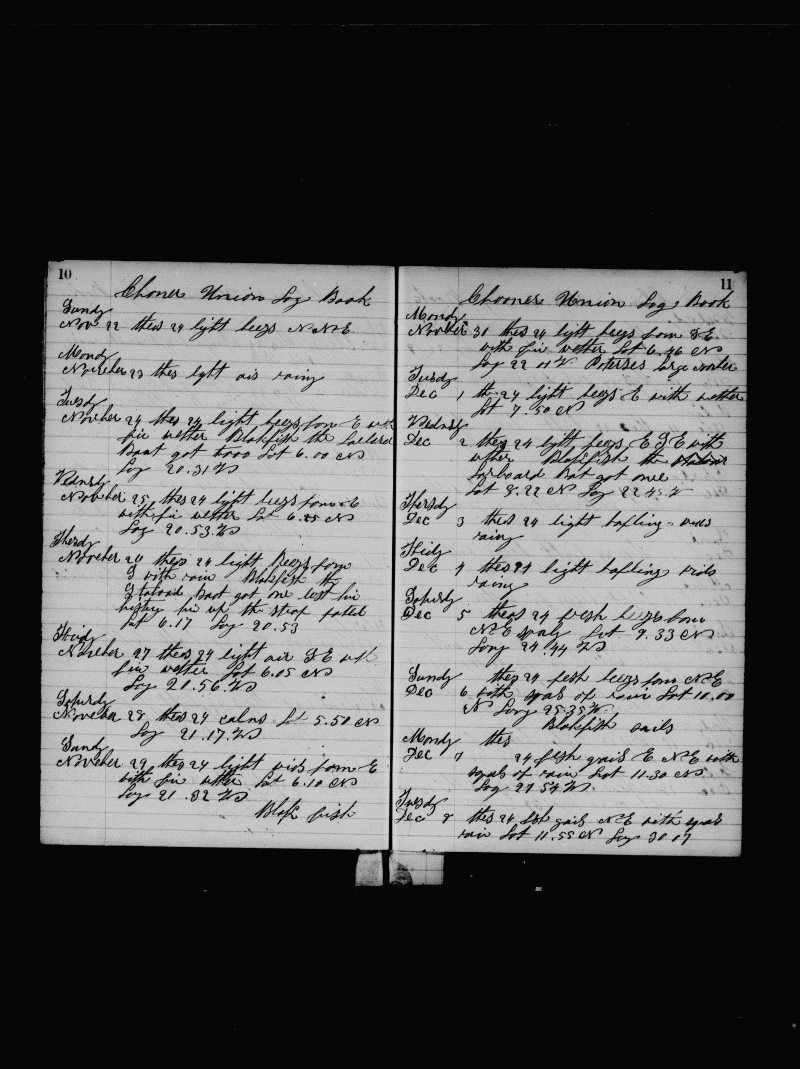 10
Choner Union Log Book
Sundy
Nov 22 thes 24 light beezs N N E
Mondy
Novcher 23 thes lght airs rainy
Tuesdy
Novcher 24 thes 24 light beezs from E with
fin wetter Blakfish the larberd
Boat got tooo Lat 6.00 N
Log 20.31 W
Wednsdy
Novcher 25 thes 24 light beezs from E
with fin wetter Lat 6.25 N
Log 20.53. W
Thersdy
Novcher 26 thes 24 light Beezs from
S with rain Blakfish the
Starbord Boat got one lost
up the strap parted
Lat 6.17 Log 20.53
Fridy
Novcher 27 thes 24 light air S E with
fin wetter Lat 6.05 N
Log 20.56. W
Saturdy
Novcher 28 thes 24 calms Lat 5.50 N
Log 21.17. W
Sundy
Novcher 29 thes 24 light wids from E
with fin wetter Lat 6.10 N
Log 21.32 W
Blak fish
11
Chooner Union Log Book
Mondy
Novcher 30 thes 24 light beezs from S E
with fin wetter Lat 6.46 N
Log 22 01 W
Tuesdy
Dec 1 the 24 light beezs E with wetter
Lat 7.50 N
Wednsdy
Dec 2 thes 24 light beezs E S E with
wetter Blakfish the
larboard Boat got one
Lat 8.22 N Log 22 45. W
Thersdy
Dec 3 thes 24 light bafling wids
rainy
Fridy
Dec 4 thes 24 light bafling wids
rainy
Saturdy
Dec 5 thes 24 fresh beezs from
N E Lat 9.33 N
Long 24 44 W
Sundy thes 24 fesh beezs from N E
Dec 6 with sqals of rain Lat 10.00
N Long 25.35 W
Blakfish
Mondy thes
Dec 7 24 fesh gails E N E with
sqals of rain Lat 11.30 N
Log 27 54 W
Tuesdy
Dec 8 thes 24 fesh gails N E with sqals
rain Lat 11.55 N Log 30 07